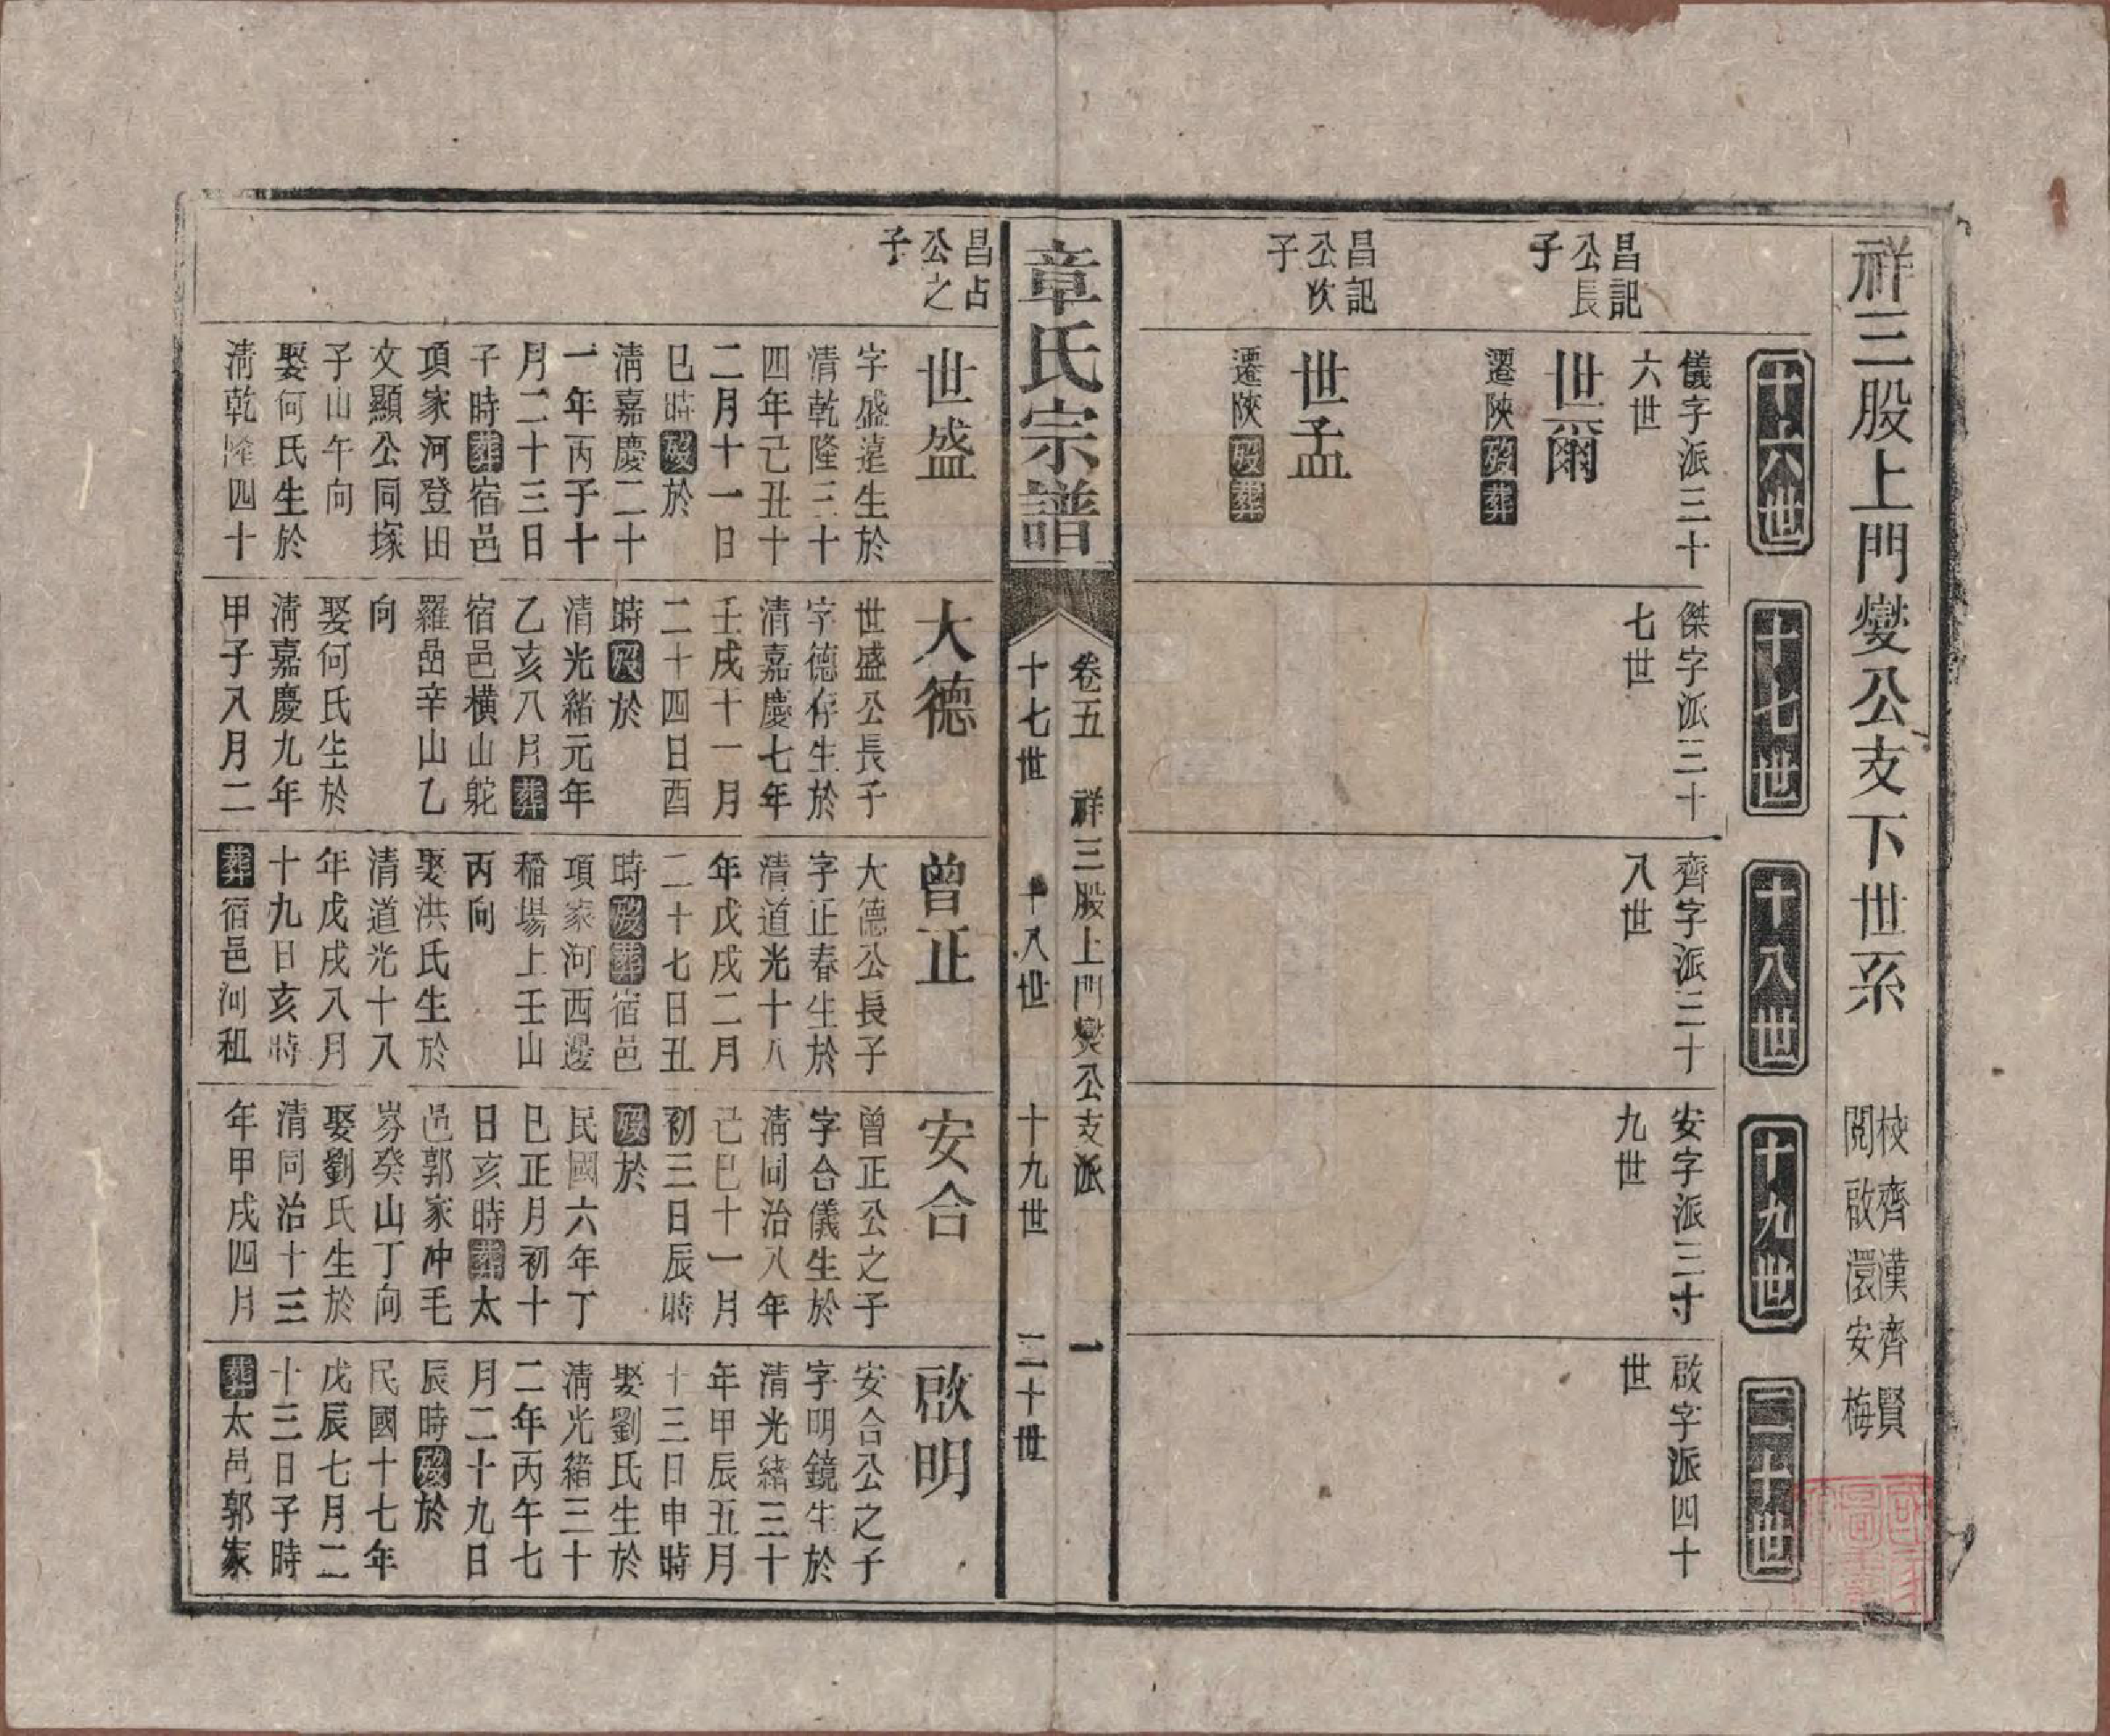 祥三股上門燮公支下世系
校齊漢齊賢
閱啟澴安梅
十六世
十七世
十八世
十九世
二十世
儀字派三十
六世
昌記
公長
子
世爾
遷陝歿葬
昌記
公次
子
世孟
遷陝歿葬
傑字派三十
七世
齊字派三十
八世
安字派三十
九世
啟字派四十
世
章氏宗譜
卷五 祥三股上門燮公支派 一
十七世 十八世 十九世 二十世
昌占
公之
子
世盛
字盛遠生於
清乾隆三十
四年己丑十
二月十一日
巳時歿於
清嘉慶二十
一年丙子十
月二十三日
子時葬宿邑
項家河登田
文顯公同塚
子山午向
娶何氏生於
清乾隆四十
大德
世盛公長子
字德存生於
清嘉慶七年
壬戌十一月
二十四日酉
時歿於
清光緒元年
乙亥八月葬
宿邑橫山鴕
羅嵒辛山乙
向
娶何氏生於
清嘉慶九年
甲子八月二
曾正
大德公長子
字正春生於
清道光十八
年戊戌二月
二十七日丑
時歿葬宿邑
項家河西邊
稻場上壬山
丙向
娶洪氏生於
清道光十八
年戊戌八月
十九日亥時
葬宿邑河租
安合
曾正公之子
字合儀生於
清同治八年
己巳十一月
初三日辰時
歿於
民國六年丁
巳正月初十
日亥時葬太
邑郭家冲毛
岕癸山丁向
娶劉氏生於
清同治十三
年甲戌四月
啟明
安合公之子
字明鏡生於
清光緒三十
年甲辰五月
十三日申時
娶劉氏生於
清光緒三十
二年丙午七
月二十九日
辰時歿於
民國十七年
戊辰七月二
十三日子時
葬太邑郭家